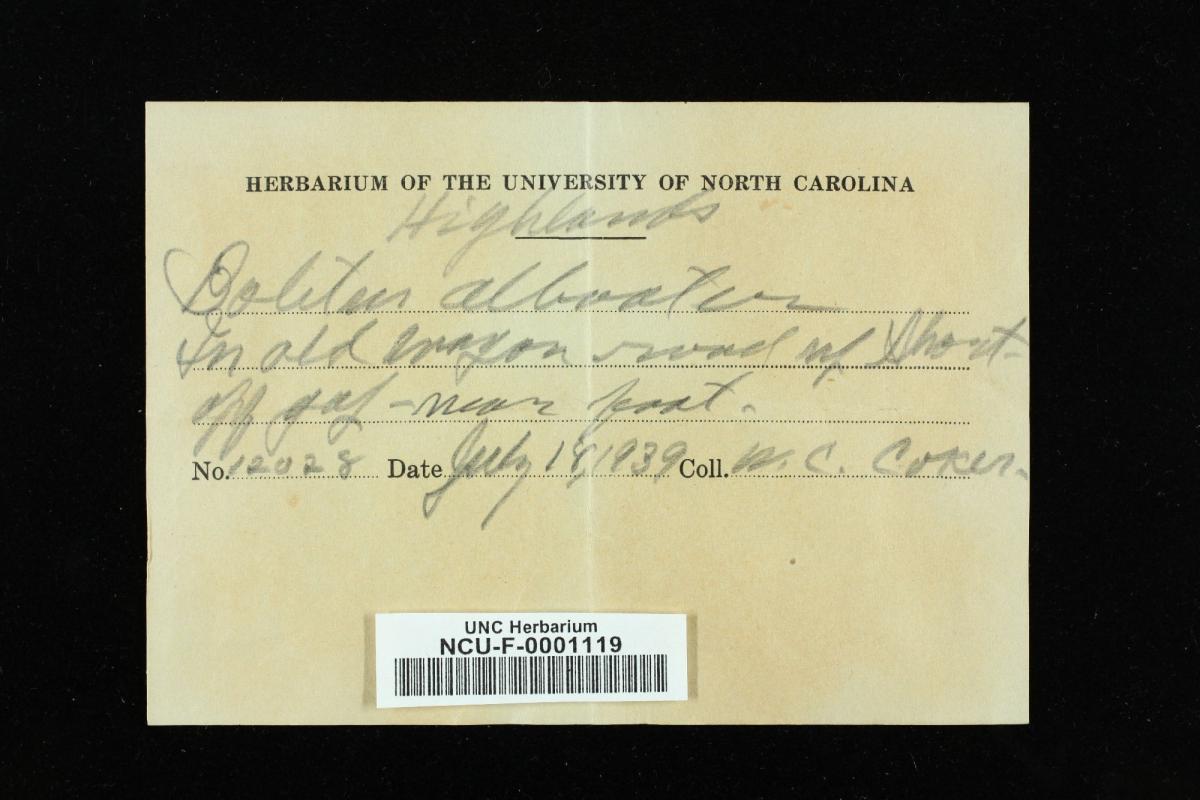 HERBARIUM OF THE UNIVERSITY OF NORTH CAROLINA
Highlands
Boletus alboater
In old wagon road up Short-
off gap - near foot.
No. 12028 Date July 18, 1939 Coll. W. C. Coker.
UNC Herbarium
NCU-F-0001119